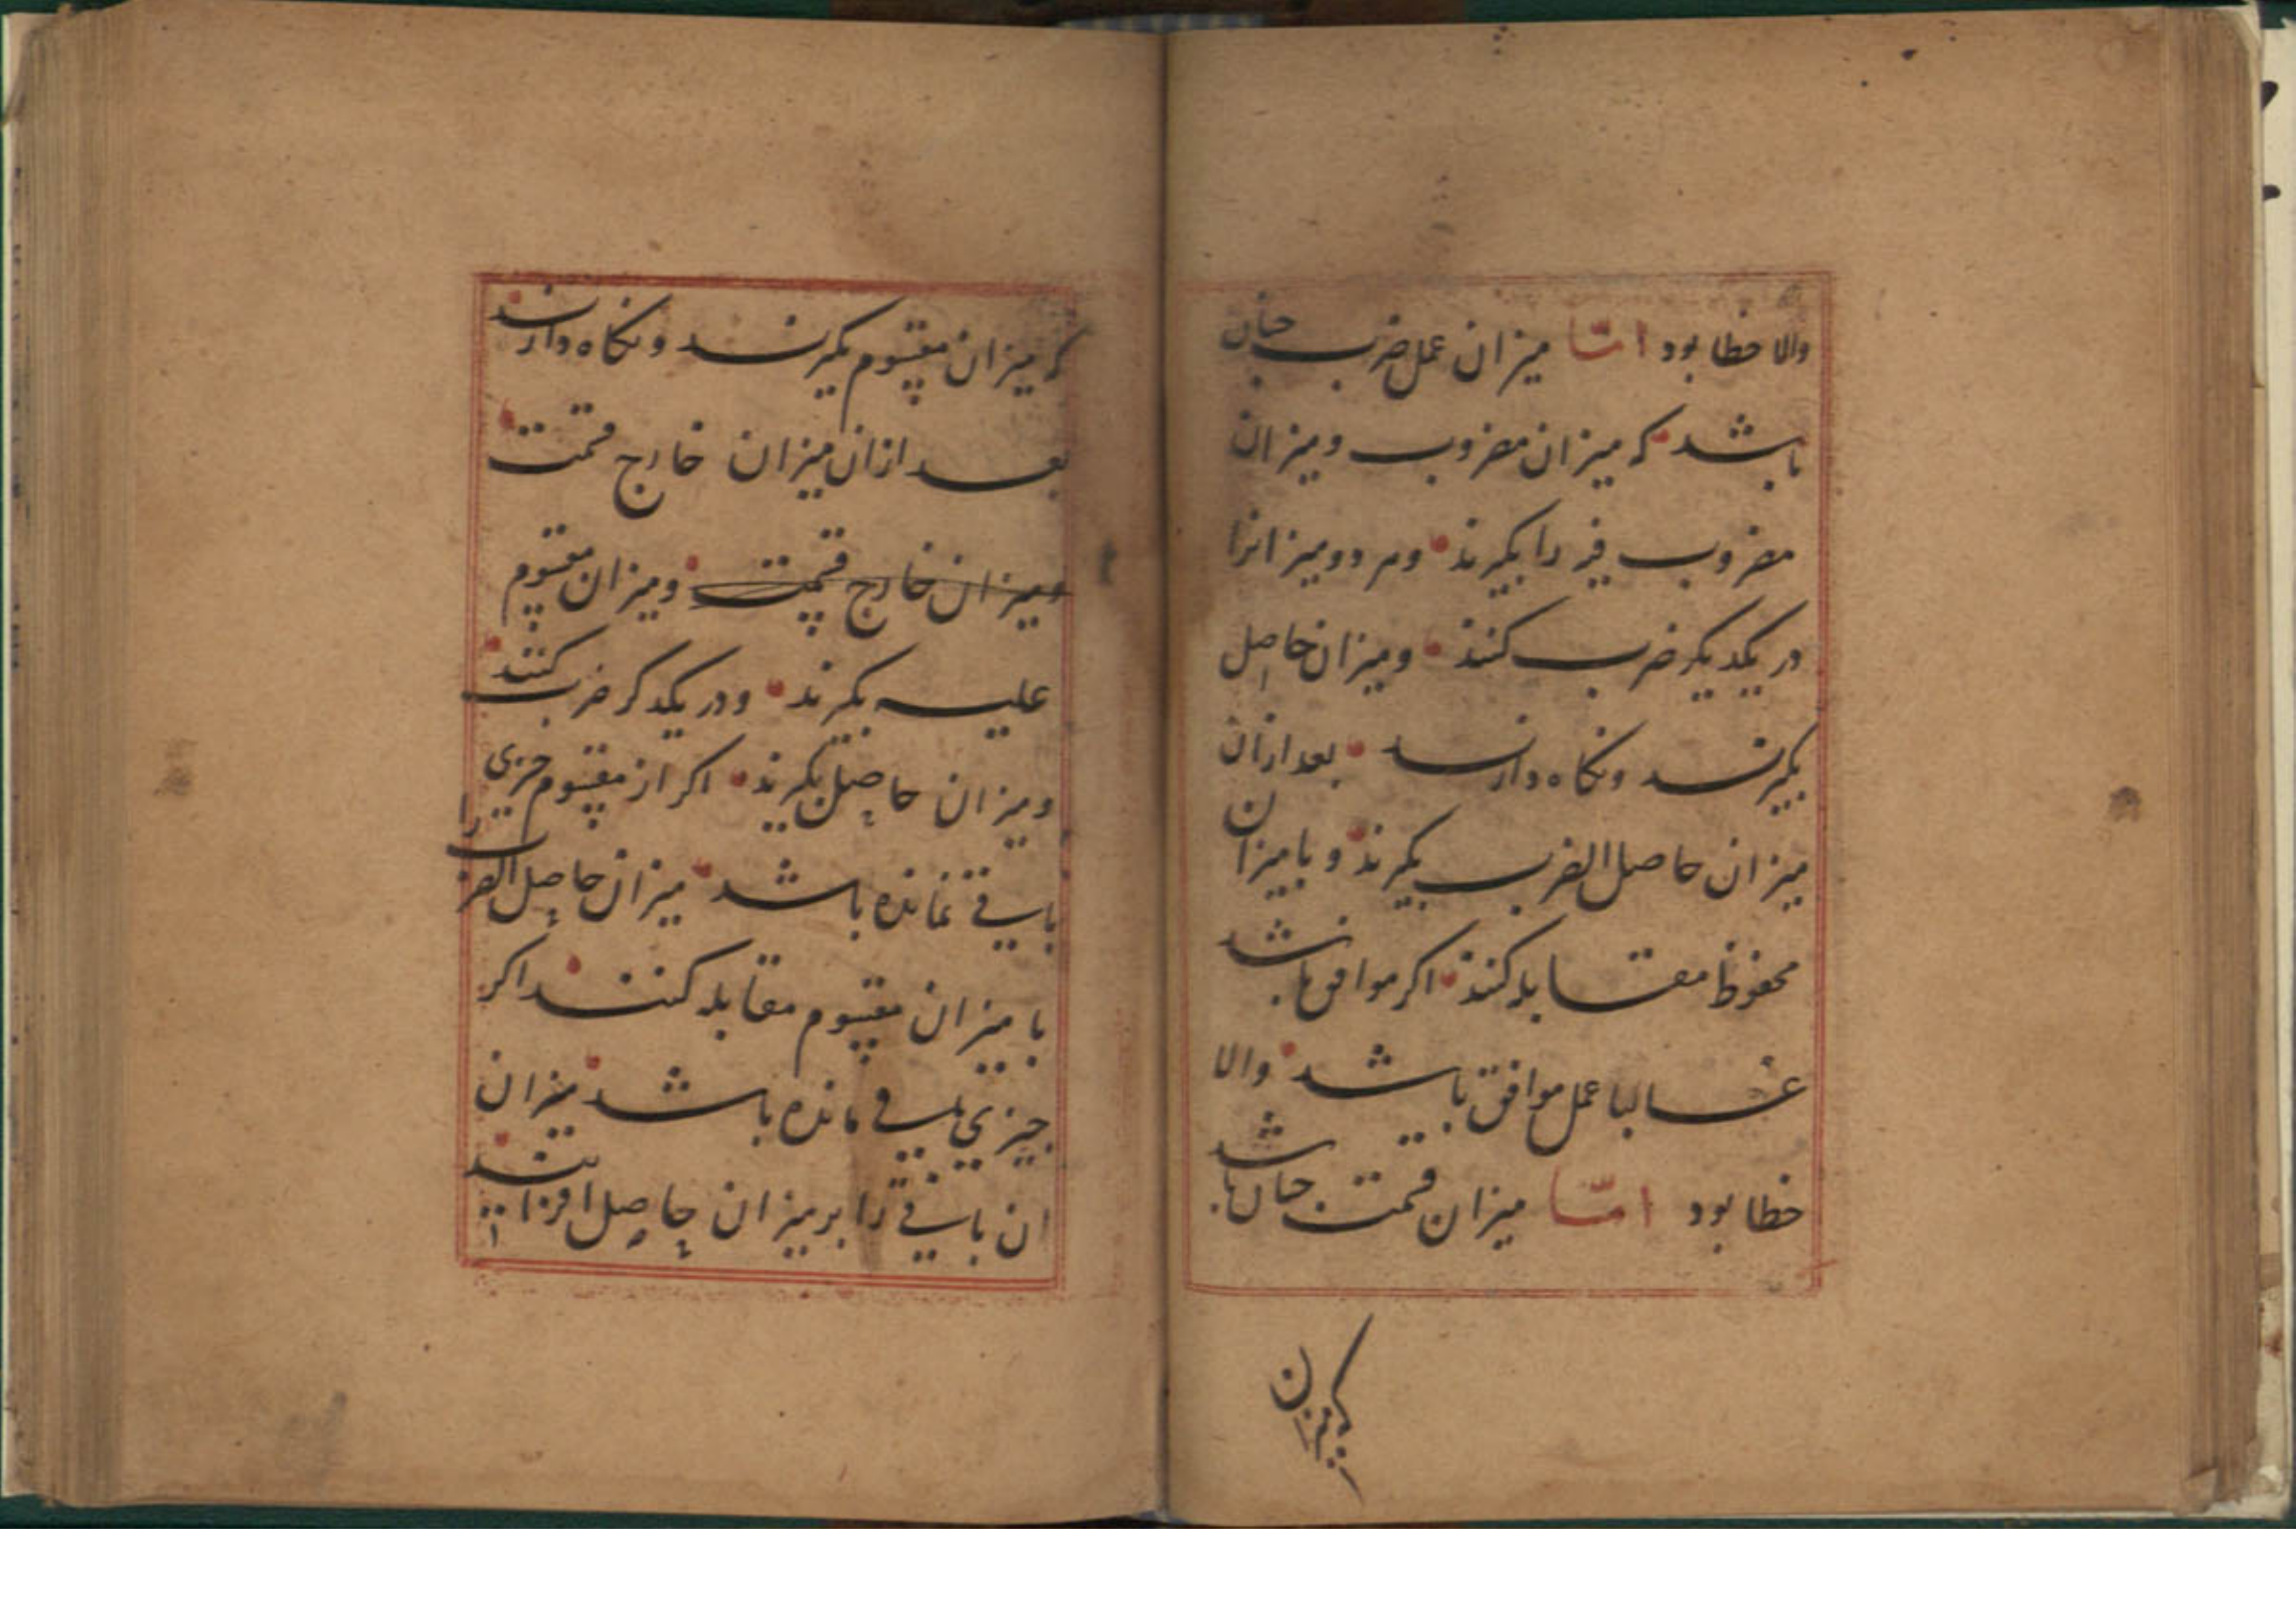 والا خطا بود امّا میزان عمل ضرب چنان
باشد که میزان مضروب و میزان
مضروب فیه را بگیرند و هر دو میزانرا
در یکدیگر ضرب کنند و میزان حاصل
بگیرند و نکاه دارند بعد ازان
میزان حاصل الضرب بگیرند و با میزان
محفوظ مقابله کنند اکر موافق باشد
غالبا عمل موافق باشد والا
خطا بود امّا میزان قسمت چنان باشد
که میزان مقسوم بگیرند و نکاه دارند
بعد ازان میزان خارج قسمت
ومیزان خارج قسمت ومیزان مقسوم
علیه بگیرند و در یکدکر ضرب کنند
ومیزان حاصل بگیرند اکر از مقسوم چیزی
باقی نمانده باشد میزان حاصل الضرب را
با میزان مقسوم مقابله کنند اکر
چیزی باقی مانده باشد میزان
ان باقی را بر میزان حاصل افزایند